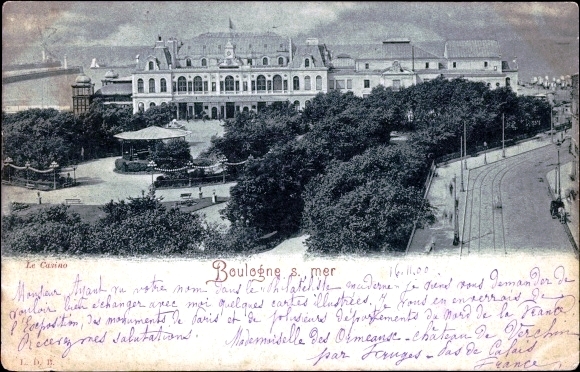 Le Casino
Boulogne s. mer
16.11.00
Monsieur Ayant vu votre nom dans le philatéliste moderne je vous demander de
vouloir bien échanger avec moi quelques cartes illustrées. J vous en enverrais de
l'Exposition, des monuments de Paris et de plusieurs départements du Nord de la France
Recevez mes salutations. Mademoiselle des Ormeaux château de
par Fruges Pas de Calais
France
L. D. B.